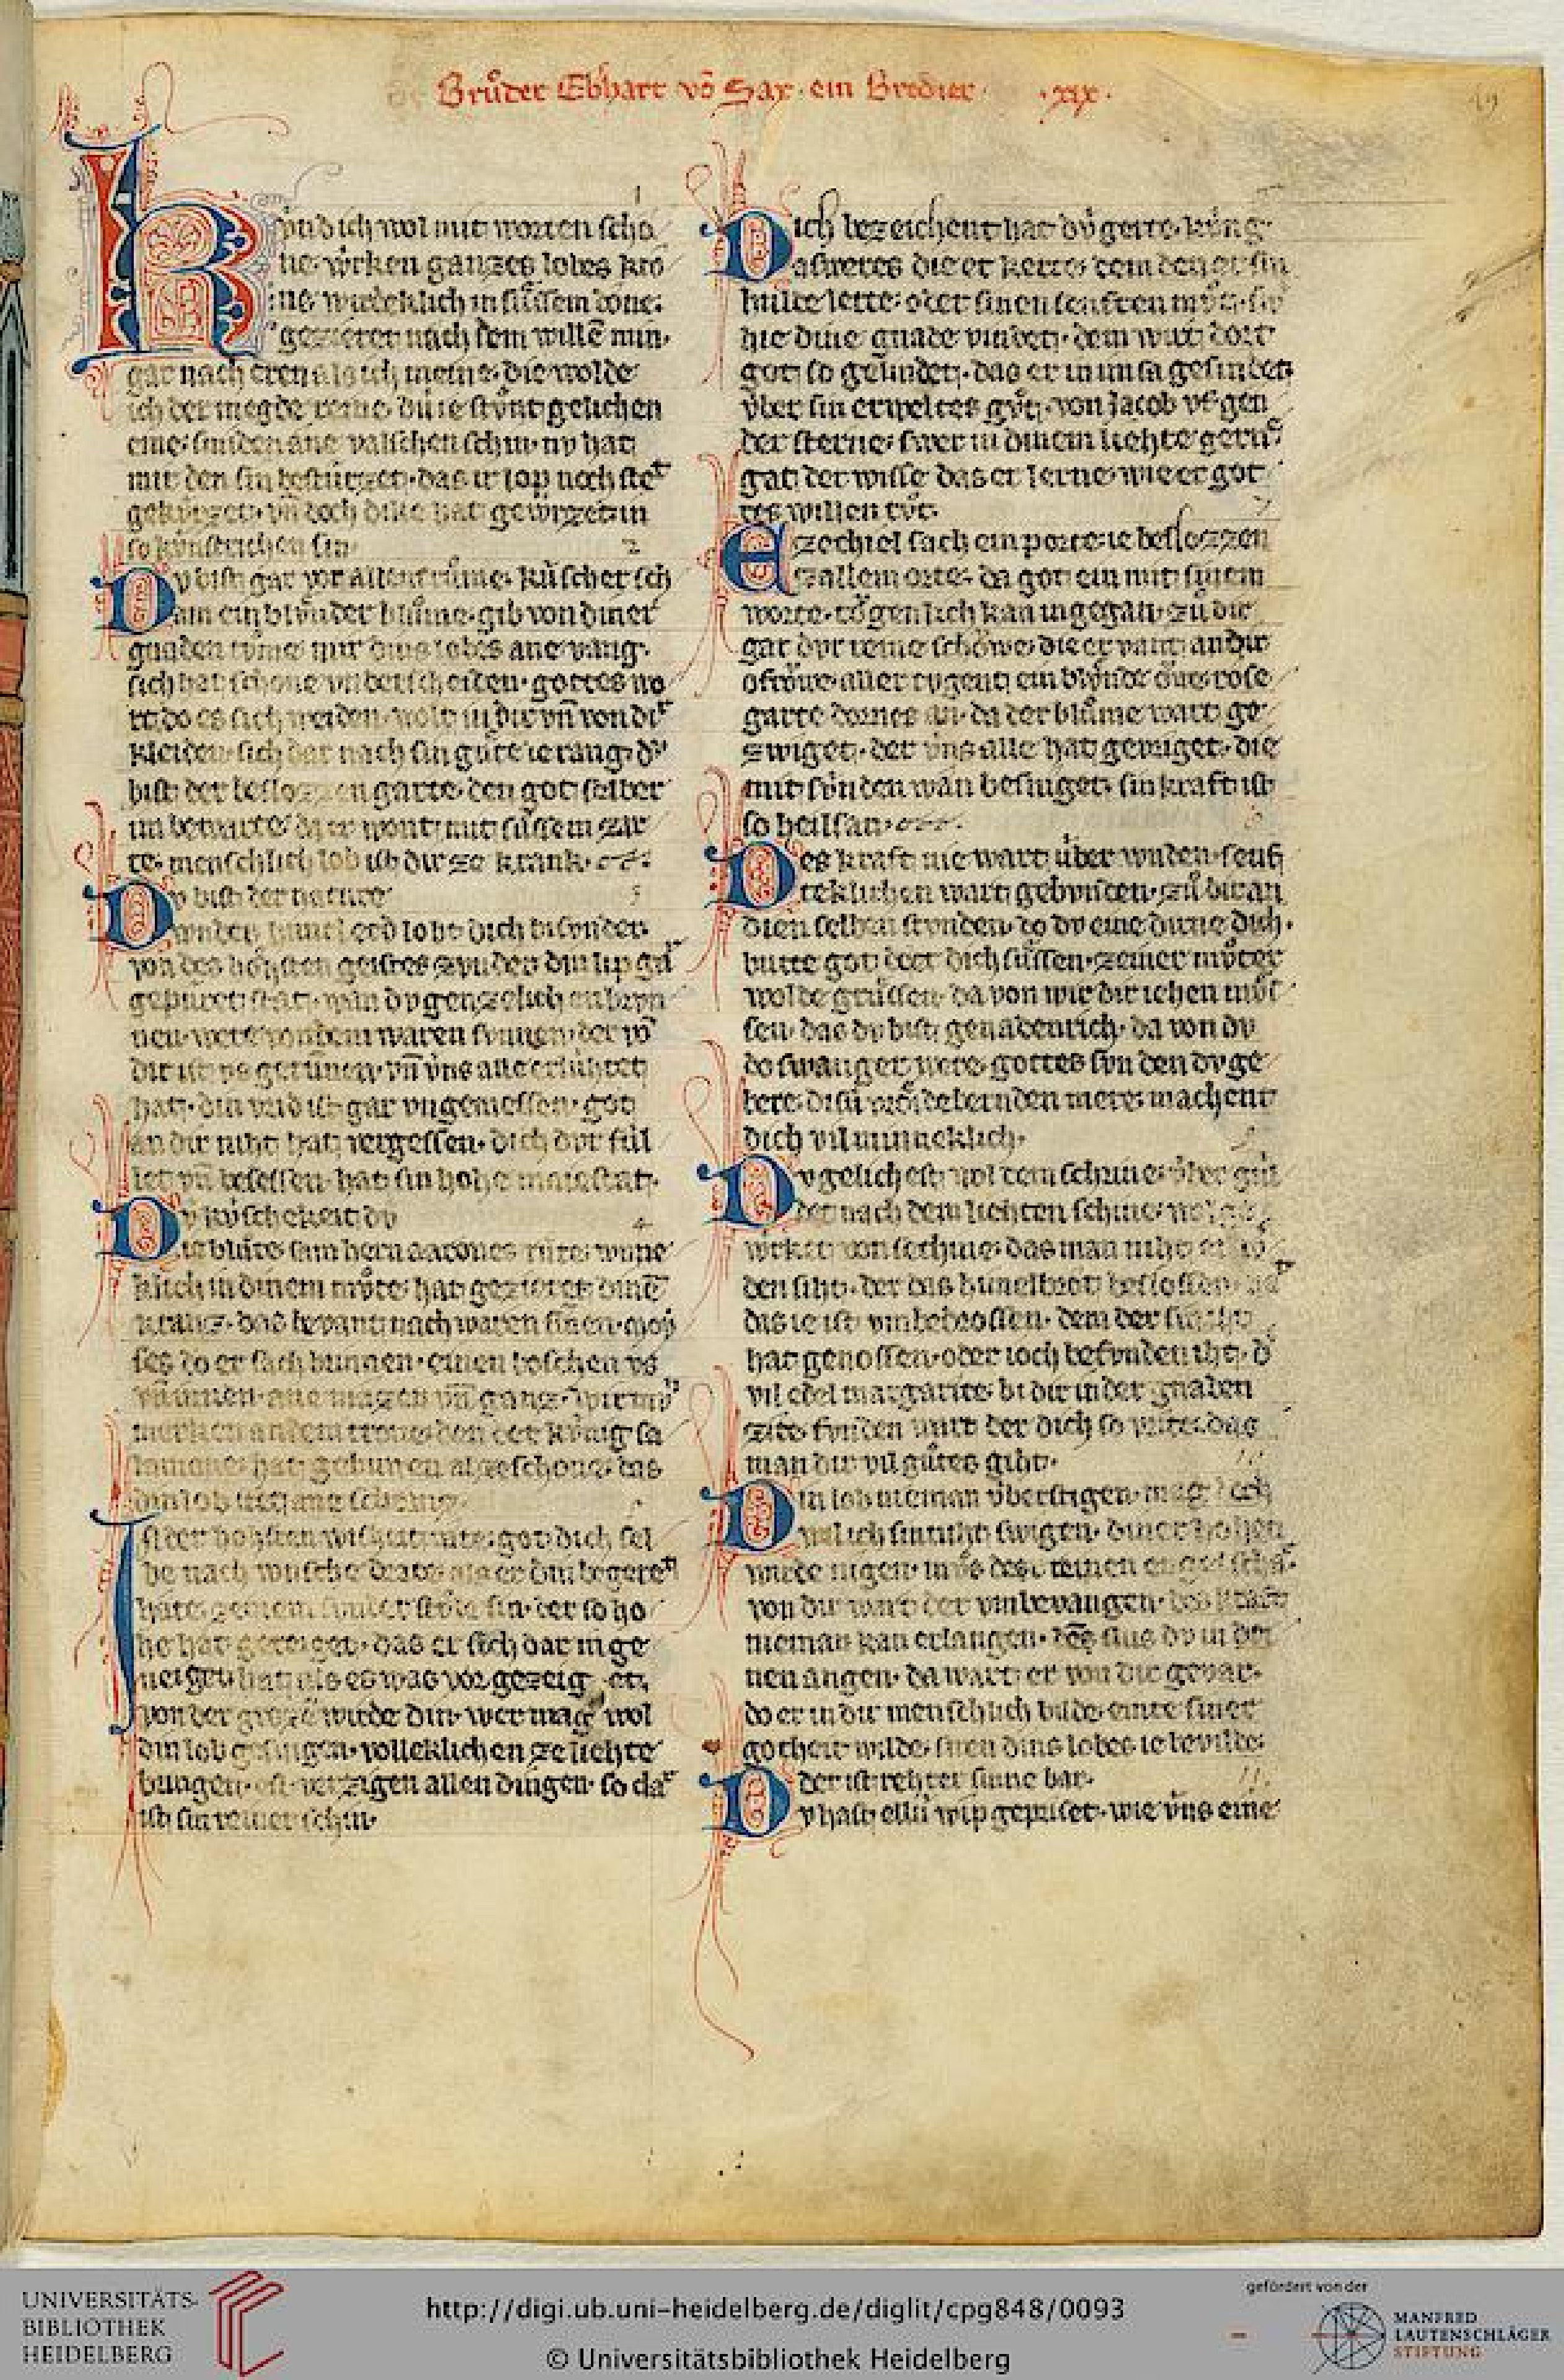 Bruͦder Ebhart vō Sax. ein Bredier. .xix.
49
1
Kvnd ich wol mit worten scho
ne. wirken ganzes lobes kro
ne. wirdeklich in suͤssem done.
gezieret nach dem willē min.
gar nach eren als ich meine. die wolde
ich der megde reine. stvnt gelichen
eine. an valschen schin. nv hat
mir den sin bestúrzet. das ir lop noch stet
gekúrzet. vn̄ doch dike hat gewirzet in
so kúnsterichen sin
2
Dv bist gar vor allem rvͦme. kúscher sch
am ein blvͤnder blvͦme. gib von diner
gnaden tvͦme. mir dins lobes ane vang.
sich hat schone vnderscheiden. gottes wo
rt do es sich weiden. wolt in dir vn̄ von dir
kleiden. sich dar nach sin guͤte ie rang. dv
bist der beslozzen garte. den got selber
im bewarte. da er wont mit suͤssem zar
te. menschlich lob ist dir ze krank.
3
Dv bist der nature
wnder. himel erd lobt dich besvnder.
von des hoͤhsten geistes zvnder. din lip gar
gepúret stat. wan dv genzelich enbrvn
nen. were von dem waren svnnen. der vō
dir ist vs gerunnen. vn̄ vns alle erlúhtet
hat. din wird ist gar vngemessen. got
an dir niht hat vergessen. dich dvr fúl
let vn̄ besessen. hat sin hohe maiestat.
4
Dv kúscheit dv
blúte. sam hern aarones rúte. wune
klich in dinem mvͦte. hat gezieret dinē
kranz. das bevant nach waren sinen. moy
ses do er sach brinnen. einen boschen vs
vn̄ innen. ane masen vn̄ ganz. wir mvͤs
merken an dem trone. den der kúnig sa
lamone. hat gebuwen also schone. das
din lob treit ane schranz.
Ist der hoͤhsten wisheit rate. got dich sel
be nach wúsche drate. als er din begeret
hate. zeinem sinder stvͦle sin. der so ho
he hat gereiget. das er sich dar in ge
neiget hat als es was vor gezeiget.
von der groze wirde din. wer mag wol
din lob gesingen. volleklichen ze liehte
bringen. verzigen allen dingen. so clar
ist sin reiner schin.
Dich bezeichent hat dú gerte. kúng
asweres die er kerte. dem den er sin
hulde lerte. oder sinen senften mvͦt. swͤ
hie dine gnade vindet. dem wirt dort
got so gelindet. das er in im sa gesindet
vͤber sin erweltes gvͦt. von Jacob vf gen
der sterne. swer in dinem liehte gerne
gat der wisse das er lerne. wie er got
tes willen tvͦt.
7
Ezechiel sach ein porte. ie beslozzen
zallem orte. da got ein mit sinem
worte. toͮgenlich kan in gegan. zuͦ dir
gar dvr reine schoͮwe. die er vant an dir
o froͮwe. aller tvgent ein blvͤnde oͮwe. rose
garte dornes an. da der blvͦme wart ge
zwiget. der vns alle hat gevriget. die
mit súnden wan besiget. sin kraft ist
so heilsan.
8
Des kraft nie wart vͤber wnden. senf
teklichen wart gebvnden. zuͦ dir an
dien selben stvnden. do dv eine dirne dich.
butte got der dich suͤssen. zeiner mvͦter
wolde gruͤssen. da von wir dir iehen mvͤs
sen. das dv bist genadenrich. da von dv
do swanger were. gottes svn den dv ge
bere. disú froͤidebernden mere. machent
dich vil minneklich.
9
Dv gelichest wol dem schrine. vͤber gúl
det nach dem liehten schine. wol ge
wirket von sethine. das man niht er fv
den siht. der das himelbrot beslossen hat
das ie ist vmbedrossen. dem der sin
hat genossen. oder ioch befvnden iht. dv
vil edel margarite. bi dir in der gnaden
zite. fvnden wirt der dich so wite. das
man dir vil guͤtes giht.
10
Din lob nieman vͤberstigen. mag doch
wil ich sin niht swigen. diner hohen
wirde nigen. mvͦs des reinen engel schar.
von dir wart der vmbevangen. des kraft
nieman kan erlangen. svs dv in der
nen angen. da wart er von dir gevar.
do er in dir menschlich bilde. einte siner
gotheit wilde. swen dins lobes ie bevilde.
der ist rehter sinne bar.
11.
Dv hast ellú wip geprisst. wie vns eine
UNIVERSITÄTS-
BIBLIOTHEK
HEIDELBERG
http://digi.ub.uni-heidelberg.de/diglit/cpg848/0093
© Universitätsbibliothek Heidelberg
gefördert von der
MANFRED
LAUTENSCHLÄGER
STIFTUNG